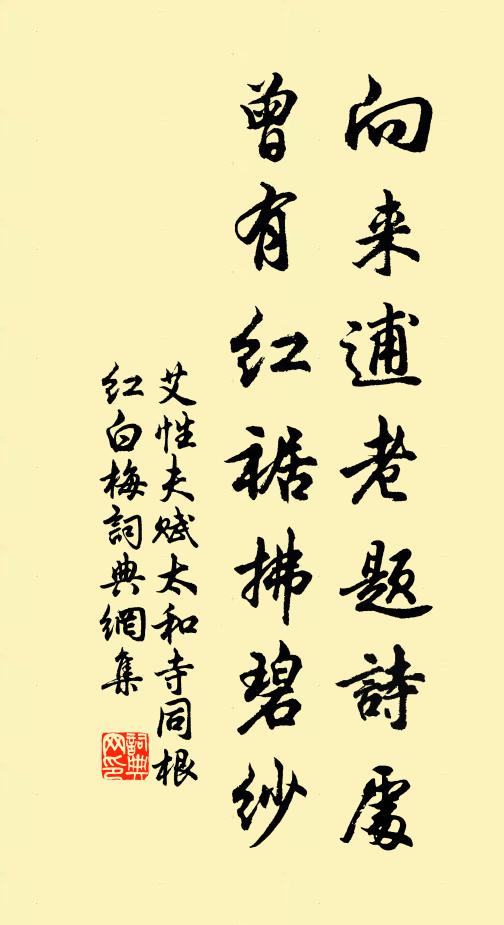 向来逋老题詩處
曾有红裾拂碧紗
艾性夫赋太和寺同根
红白梅詞典網集
詞典网印